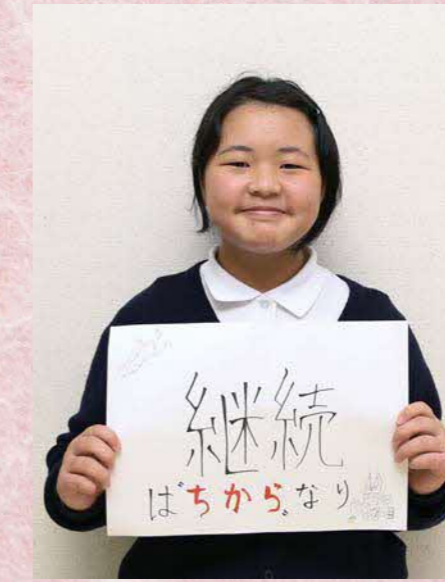 継続
は〝ちから〟なり